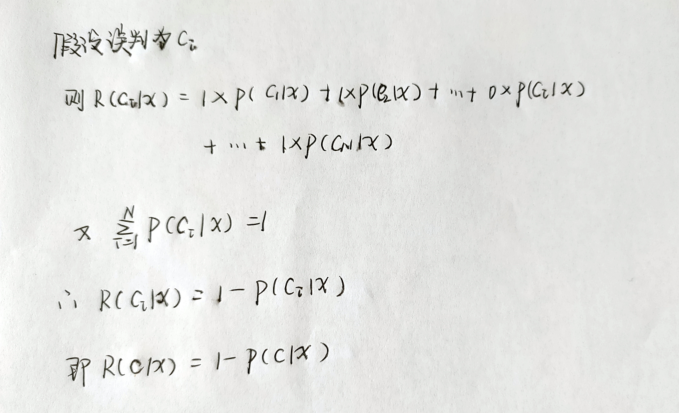 假设误判为 Ci
则 R(Ci|x) = 1×P(C1|x) + 1×P(C2|x) + … + 0×P(Ci|x)
+ … + 1×P(CN|x)
又 N∑i=1 P(Ci|x) = 1
∴ R(Ci|x) = 1 - P(Ci|x)
即 R(C|x) = 1 - P(C|x)